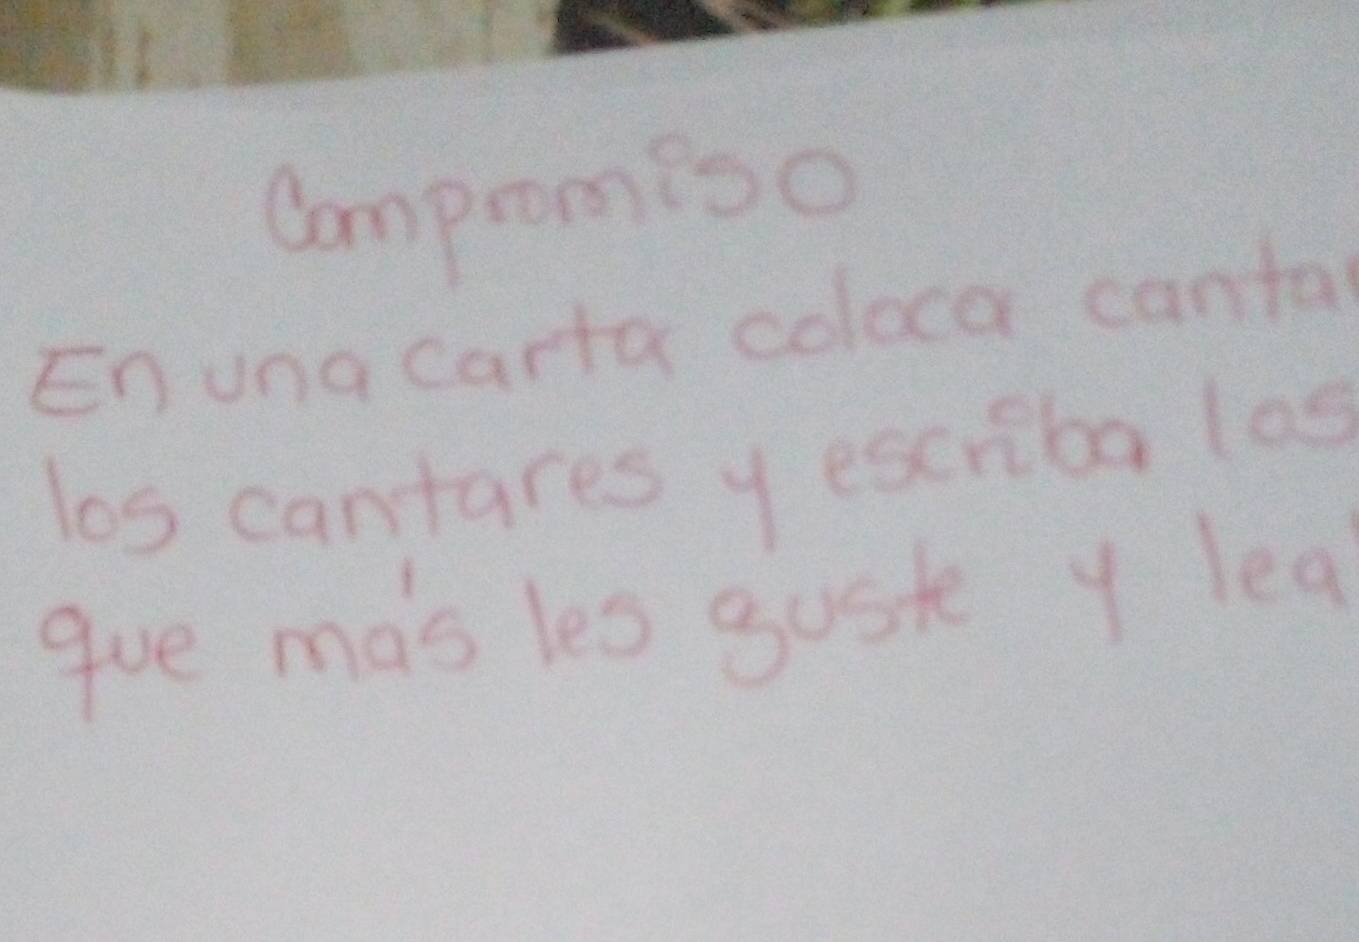 Compromiso
En una carta coloca canta
los cantares y escriba los
que más les guste y lea